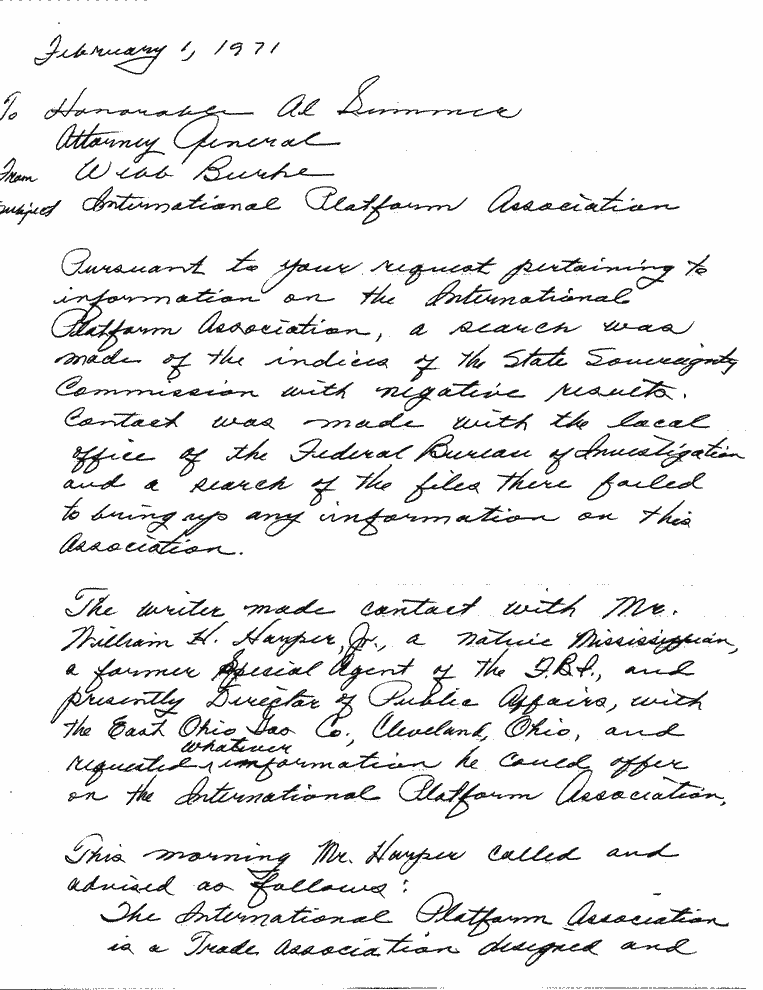 February 1, 1971
To Honorable Al Summer
Attorney General
From Webb Burke
Subject International Platform Association
Pursuant to your request pertaining to
information on the International
Platform Association, a search was
made of the indices of the State Sovereignty
Commission with negative results.
Contact was made with the local
office of the Federal Bureau of Investigation
and a search of the files there failed
to bring up any information on this
Association.
The writer made contact with Mr.
William H. Harper, Jr., a native Mississippian,
a former Special Agent of the F.B.I., and
presently Director of Public Affairs, with
the East Ohio Gas Co., Cleveland, Ohio, and
whatever
requested information he could offer
on the International Platform Association.
This morning Mr. Harper called and
advised as follows:
The International Platform Association
is a Trade Association designed and